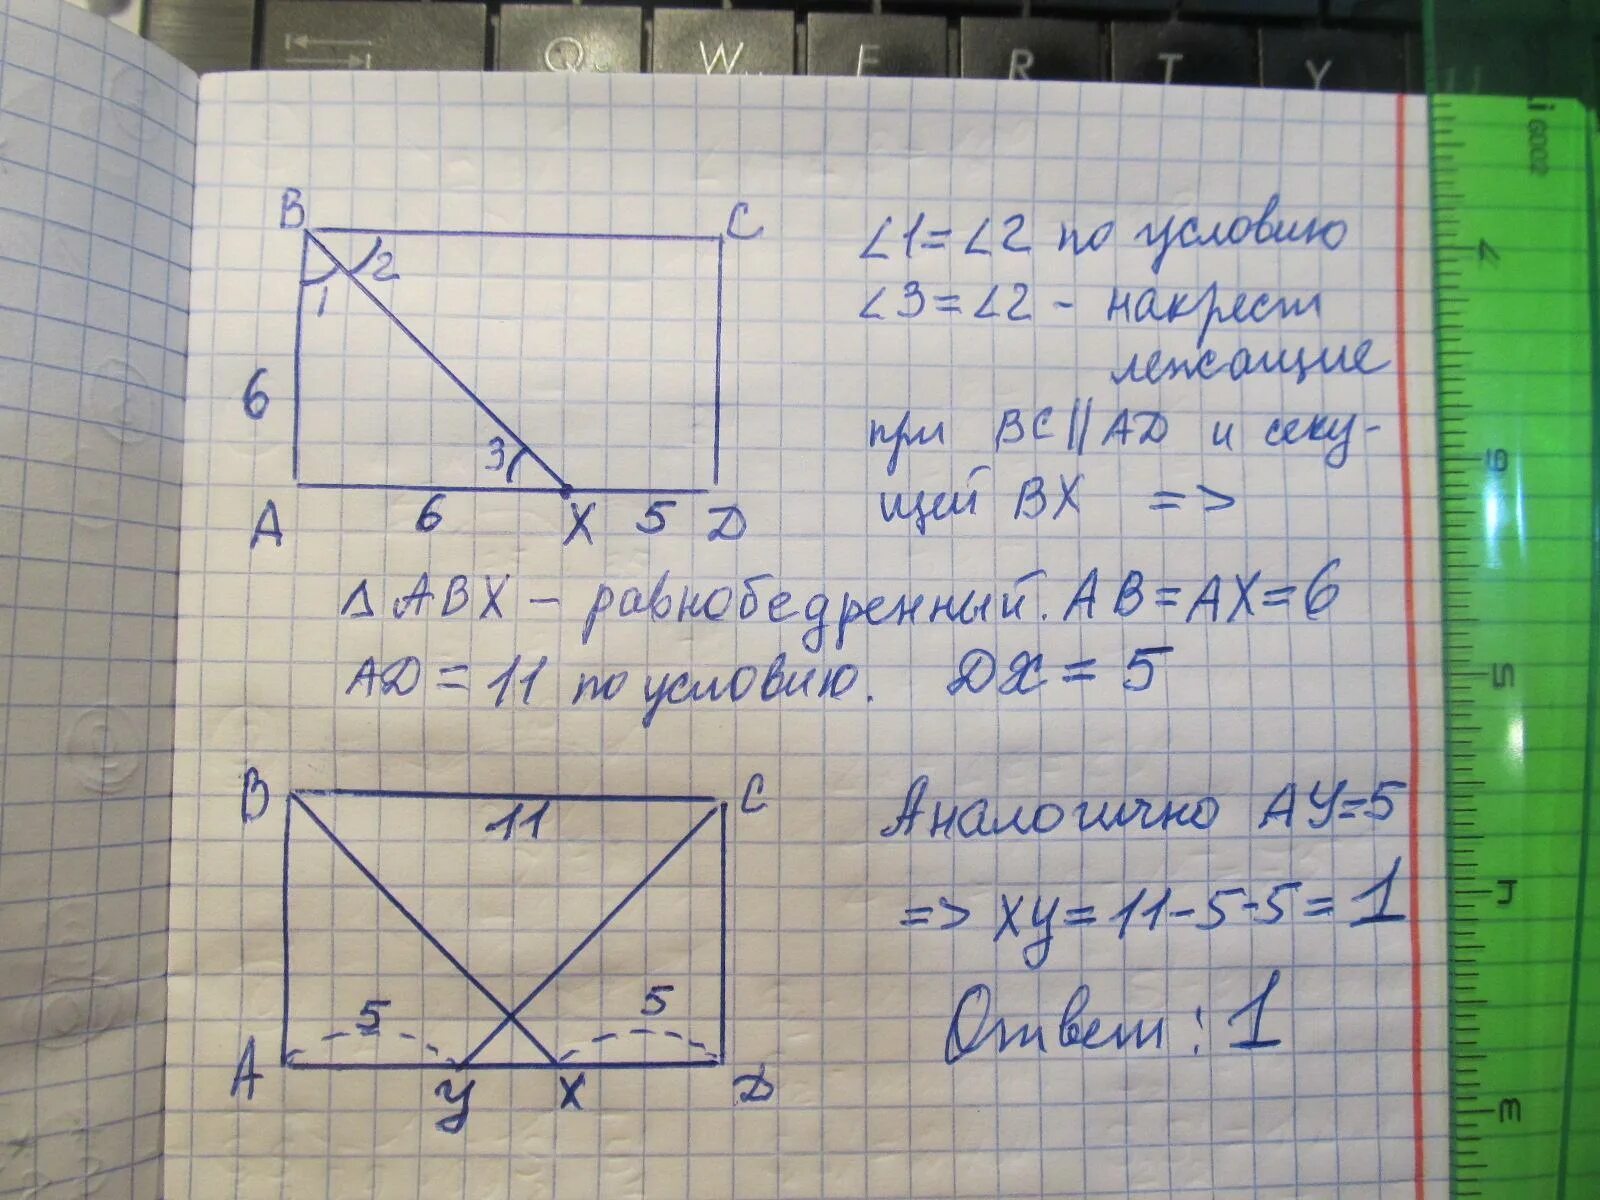 Q W E R T Y U
B C
∠1=∠2 по условию
2
1
∠3=∠2 - накрест
лежащие
6
3
при BC||AD и секу-
щей BX =>
A 6 X 5 D
Δ ABX - равнобедренный. AB=AX=6
AD=11 по условию. DX=5
B 11 C
Аналогично AY=5
=> XY=11-5-5=1
5 5
Ответ: 1
A Y X D
6002
7
6
5
4
3